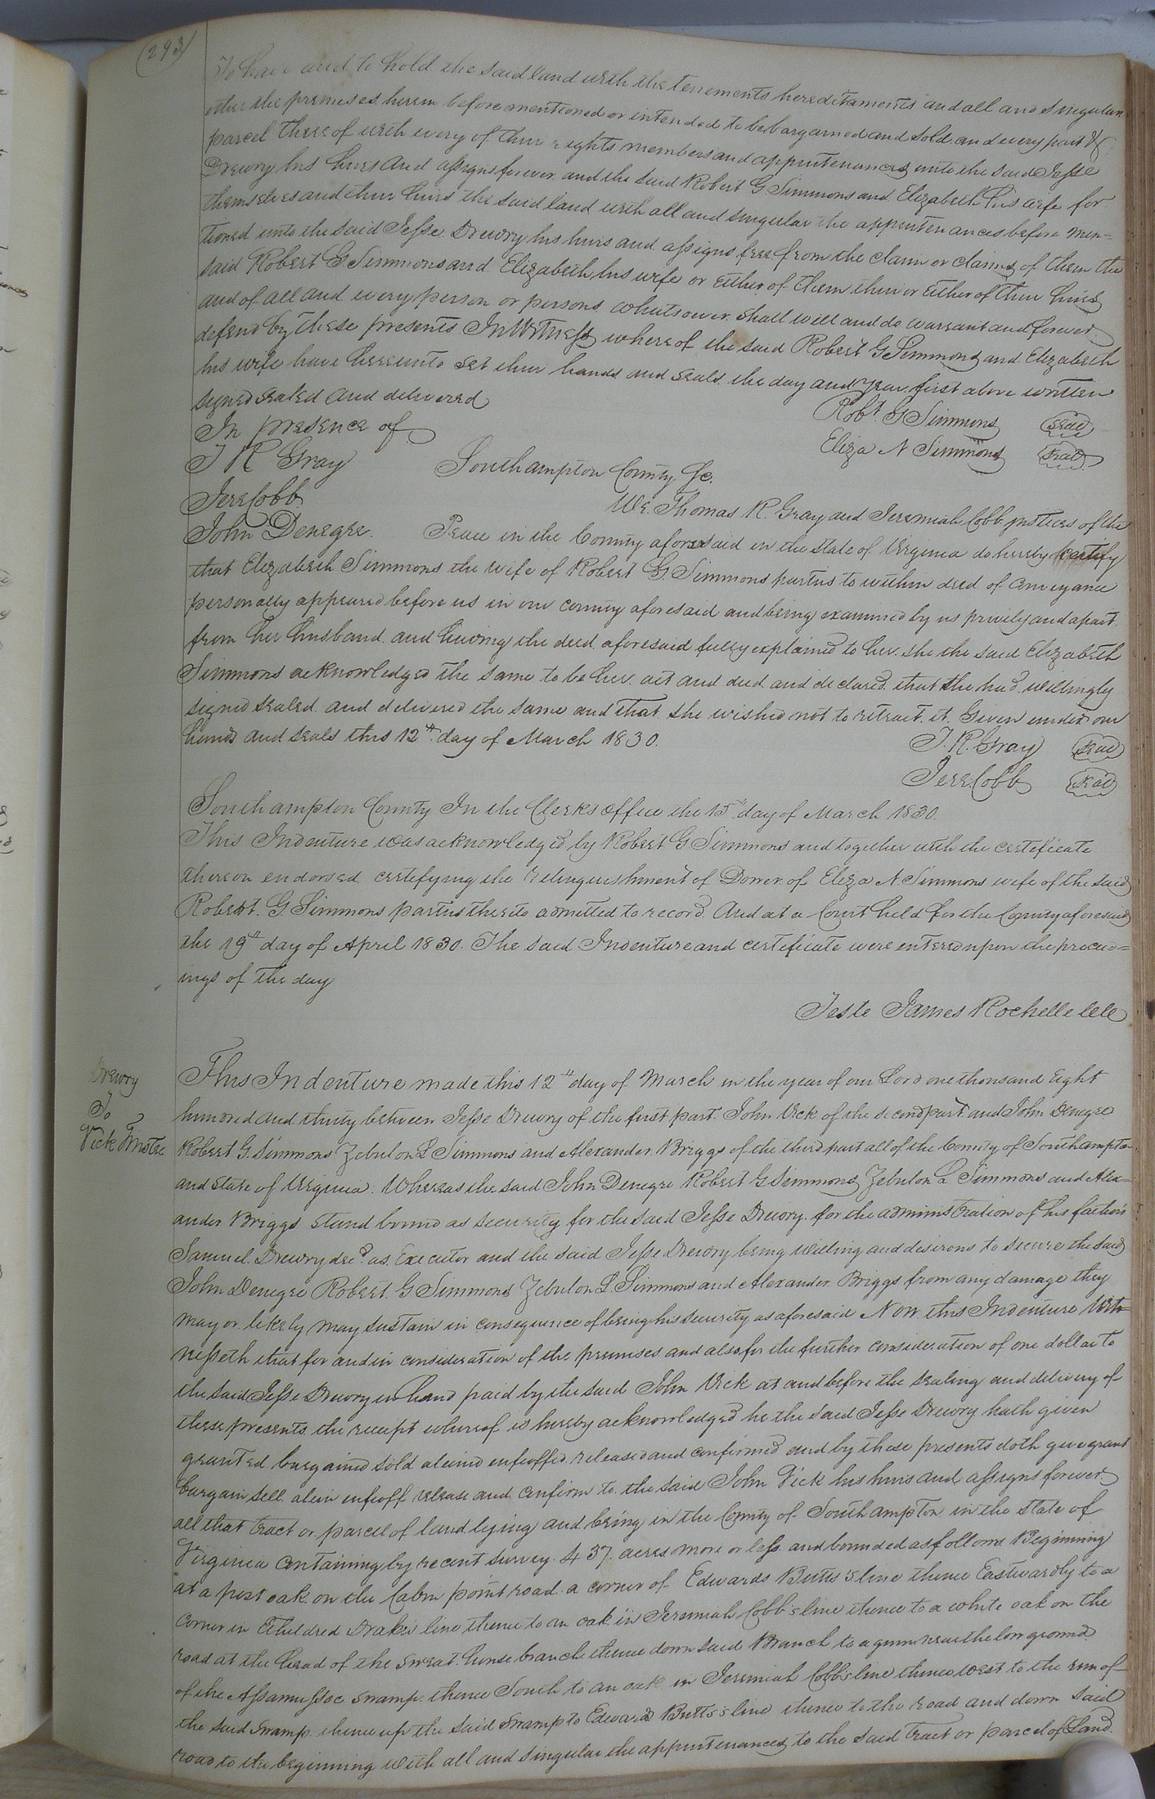 (293)
To have and to hold the said land with the tenements hereditaments and all and Singular
other the premises herein before mentioned or intended to be bargained and Sold and every part &
parcel thereof with every of their rights members and appurtenances unto the said Jesse
Drewry his heirs and assigns forever and the said Robert G Simmons and Elizabeth his wife for
themselves and their heirs the said land with all and singular the appurtenances before men-
tioned unto the said Jesse Drewry his heirs and assigns free from the claim or claims of them the
said Robert G Simmons and Elizabeth his wife or either of them their or either of their heirs
and of all and every person or persons whatsoever shall will and do warrant and forever
defend by these presents In Witness whereof the said Robert G Simmons and Elizabeth
his wife have hereunto set their hands and seals the day and year first above written
signed sealed and delivered
In presence of
Robt G Simmons Seal
Eliza N Simmons Seal
T R Gray
Jere Cobb
John Denegre.
Southampton County Sc.
We Thomas R. Gray and Jeremiah Cobb justices of the
Peace in the County aforesaid in the state of Virginia do hereby certify
that Elizabeth Simmons the wife of Robert G Simmons parties to within deed of conveyance
personally appeared before us in our county aforesaid and being examined by us privily and apart
from her husband and having the deed aforesaid fully explained to her she the said Elizabeth
Simmons acknowledged the same to be her act and deed and declared that she had willingly
signed sealed and delivered the same and that she wished not to retract it Given under our
hands and seals this 12th day of March 1830.
T. R. Gray Seal
Jere Cobb Seal
Southampton County In the Clerks office the 15th day of March 1830.
This Indenture was acknowledged by Robert G Simmons and together with the certificate
thereon endorsed certifying the relinquishment of Dower of Eliza N Simmons wife of the said
Robert G Simmons parties thereto admitted to record. And at a Court held for the County aforesaid
the 19th day of April 1830. The said Indenture and certificate were entered upon the proceed=
ings of the day
Teste James Rochelle Clk
Drewry
To
Vick Trustee
This Indenture made this 12th day of March in the year of our Lord one thousand eight
hundred and thirty between Jesse Drewry of the first part John Vick of the second part and John Denegre
Robert G. Simmons Zebulon L Simmons and Alexander Briggs of the third part all of the County of Southampton
and state of Virginia. Whereas the said John Denegre Robert G Simmons Zebulon L Simmons and Alex=
ander Briggs stand bound as security for the said Jesse Drewry for the administration of his father's
Samuel Drewry decd. as Executor and the said Jesse Drewry being willing and desirous to secure the said
John Denegre Robert G Simmons Zebulon L Simmons and Alexander Briggs from any damage they
may or likely may sustain in consequence of being his security as aforesaid Now this Indenture Wit=
nesseth that for and in consideration of the premises and also for the further consideration of one dollar to
the said Jesse Drewry in hand paid by the said John Vick at and before the sealing and delivery of
these presents the receipt whereof is hereby acknowledged he the said Jesse Drewry hath given
granted bargained sold aliened enfeoffed released and confirmed and by these presents doth give grant
bargain sell alien enfeoff release and confirm to the said John Vick his heirs and assigns forever
all that tract or parcel of land lying and being in the County of Southampton in the State of
Virginia containing by recent survey 437. acres more or less and bounded as follows Beginning
at a post oak on the Cabin point road a corner of Edwards Butts's line thence Eastwardly to a
corner in Etheldred Drakes line thence to an oak in Jeremiah Cobb's line thence to a white oak on the
road at the head of the Sweat house branch thence down said Branch to a gum near the low grounds
of the Assamussoc swamp thence South to an oak in Jeremiah Cobb's line thence west to the run of
the said swamp, thence up the said swamp to Edward Butts's line thence to the road and down said
road to the beginning with all and singular the appurtenances to the said tract or parcel of Land.